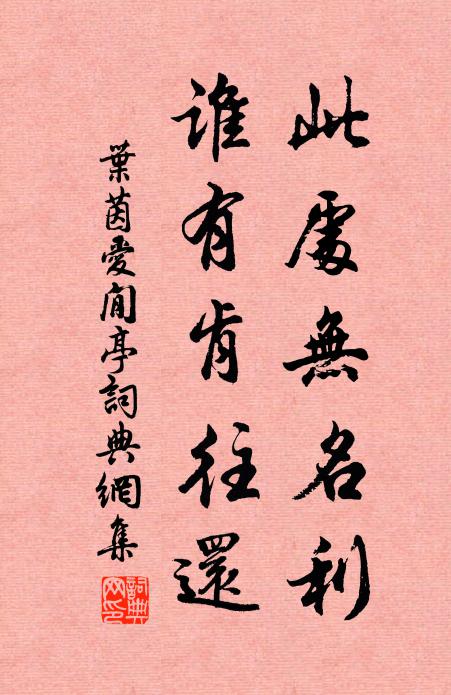 此處無名利
誰有肯往還
葉茵愛閒亭詞典網集
詞典網印